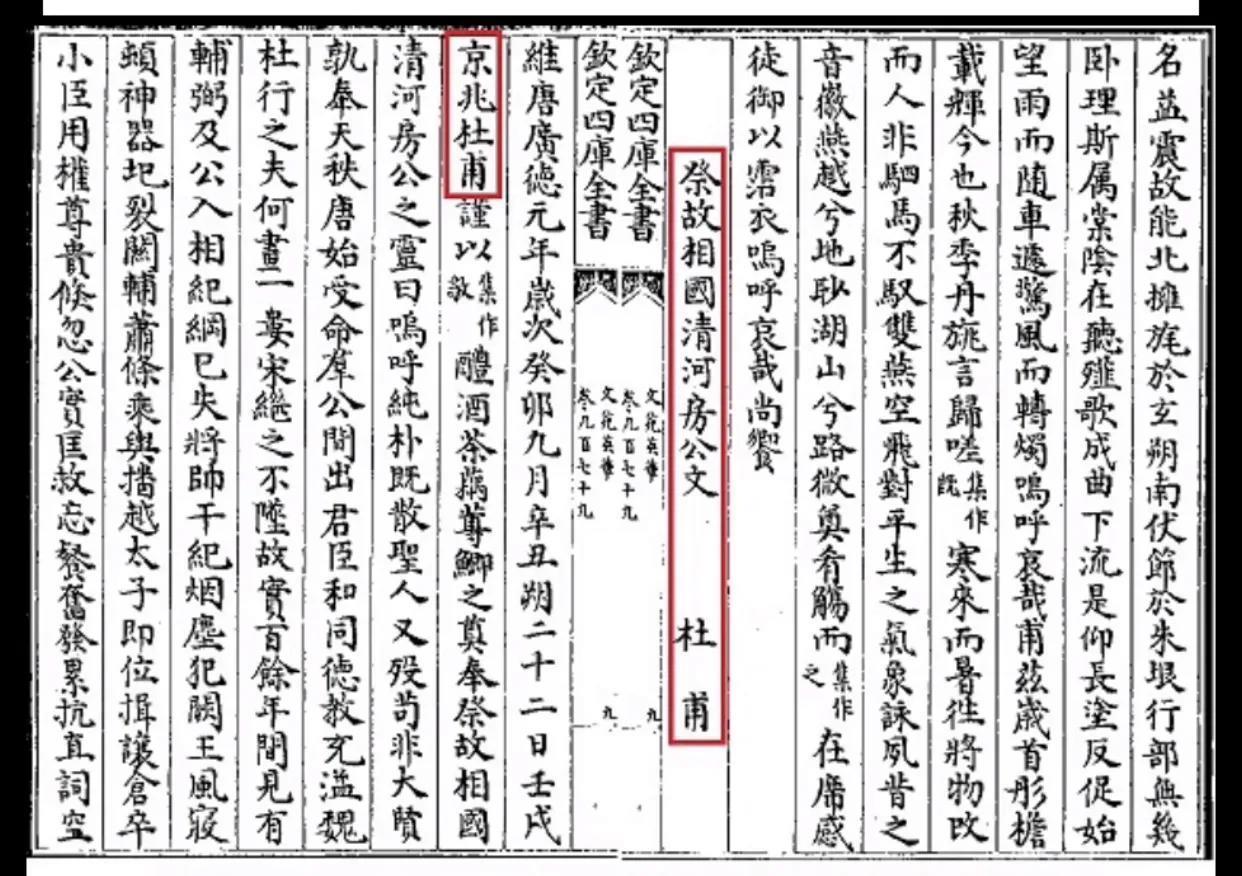 名益震故能北擁旄於玄朔南伏節於朱垠行部無幾
卧理斯属棠陰在聽殲歌成曲下流是仰長塗反促始
望雨而随車遽驚風而轉燭嗚呼哀哉甫兹歲首彤襜
載輝今也秋季丹旐言歸嗟集作既寒來而暑徃將物改
而人非駟馬不馭雙燕空飛對平生之氣象詠夙昔之
音徽燕越兮地眇湖山兮路微奠肴觴而集作之在席感
徒御以霑衣嗚呼哀哉尚饗
祭故相國清河房公文 杜甫
欽定四庫全書 文苑英華 卷九百七十九 九
欽定四庫全書 文苑英華 卷九百七十九 九
維唐廣徳元年歲次癸卯九月辛丑朔二十二日壬戌
京兆杜甫謹以集作敬醴酒茶藕蓴鯽之奠奉祭故相國
清河房公之靈曰嗚呼純朴既散聖人又殁茍非大賢
孰奉天秩唐始受命羣公間出君臣和同徳教充溢魏
杜行之夫何畫一婁宋繼之不墜故實百餘年間見有
輔弼及公入相紀綱已失將帥干紀烟塵犯闕王風寢
頓神器圯裂闗輔蕭條乘輿播越太子即位揖讓倉卒
小臣用權尊貴倐忽公實匡救忘餐奮發累抗直詞空